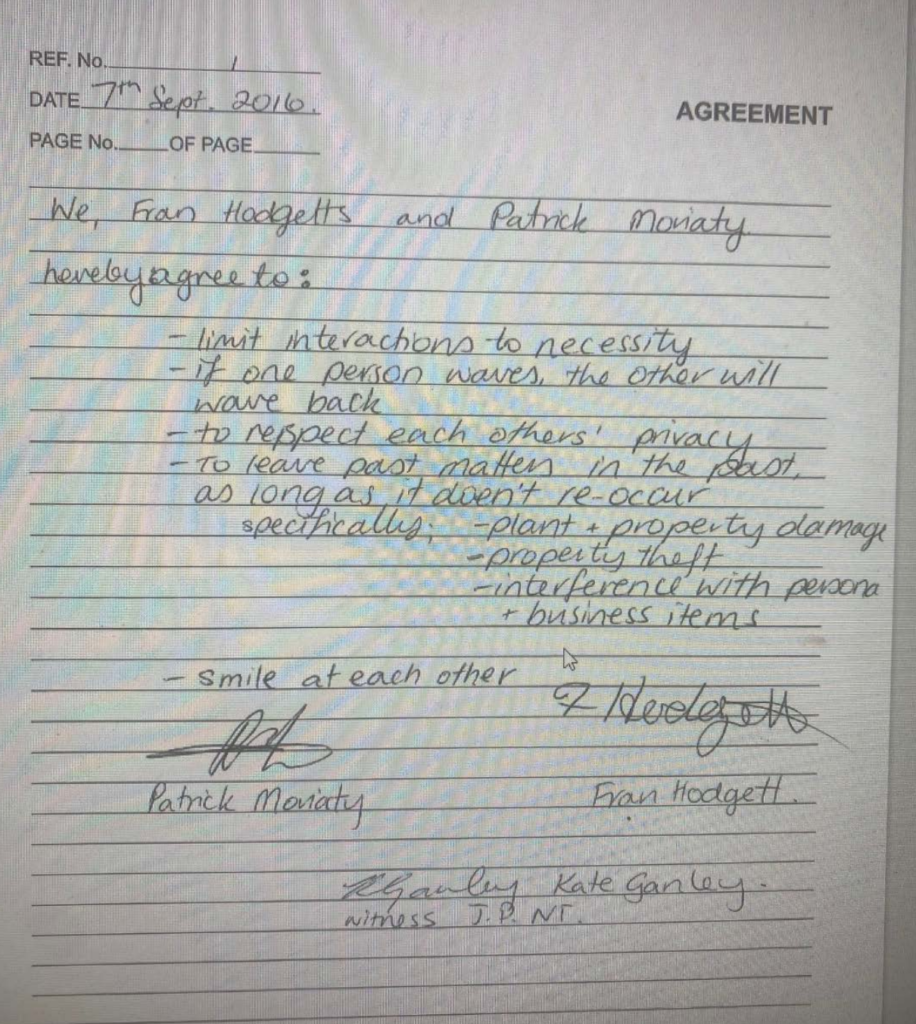 REF. No. 1
DATE 7th Sept. 2016.
AGREEMENT
PAGE No. OF PAGE
We, Fran Hodgetts and Patrick Moriaty
hereby agree to:
- limit interactions to necessity
- if one person waves, the other will
wave back
- to respect each others' privacy
- To leave past matters in the past,
as long as it doen't re-occur
specifically: - plant + property damage
- property theft
- interference with persona
+ business items
- smile at each other
F Hodgetts
Patrick Moriaty
Fran Hodgett.
KGanley Kate Ganley.
witness J.P. NT.